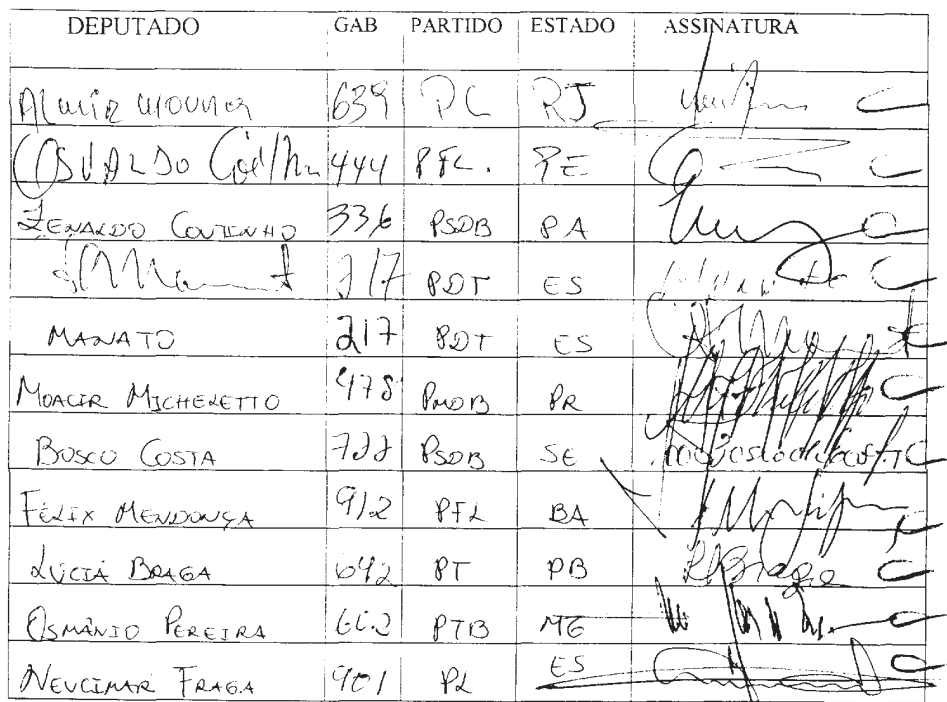 DEPUTADO GAB PARTIDO ESTADO ASSINATURA
Almir Moura 639 PL RJ
OSVALDO Coelho 444 PFL. PE
ZENALDO COUTINHO 336 PSDB PA
217 PDT ES
MANATO 217 PDT ES
MOACIR MICHELETTO 478 PMDB PR
BOSCO COSTA PSDB SE
FÉLIX MENDONÇA 912 PFL BA
LÚCIA BRAGA 642 PT PB LBraga
OSMÂNIO PEREIRA 602 PTB MG
NEUCIMAR FRAGA 901 PL ES